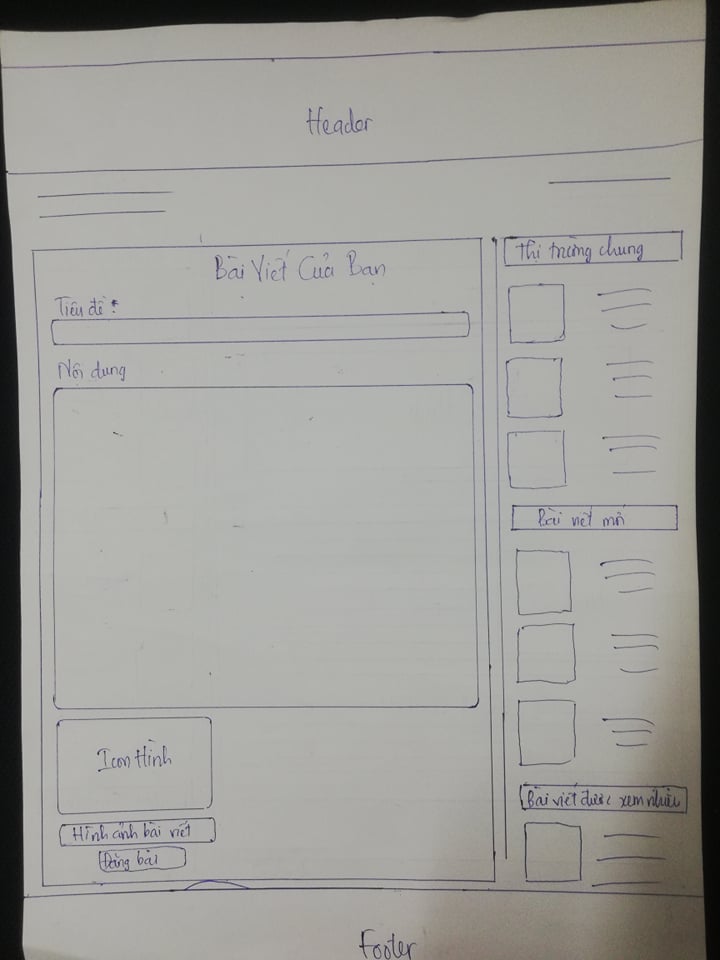 Header
Bài Viết Của Bạn
Tiêu đề *
Nội dung
Icon Hình
Hình ảnh bài viết
Đăng bài
Thị trường chung
Bài viết mới
Bài viết được xem nhiều
Footer